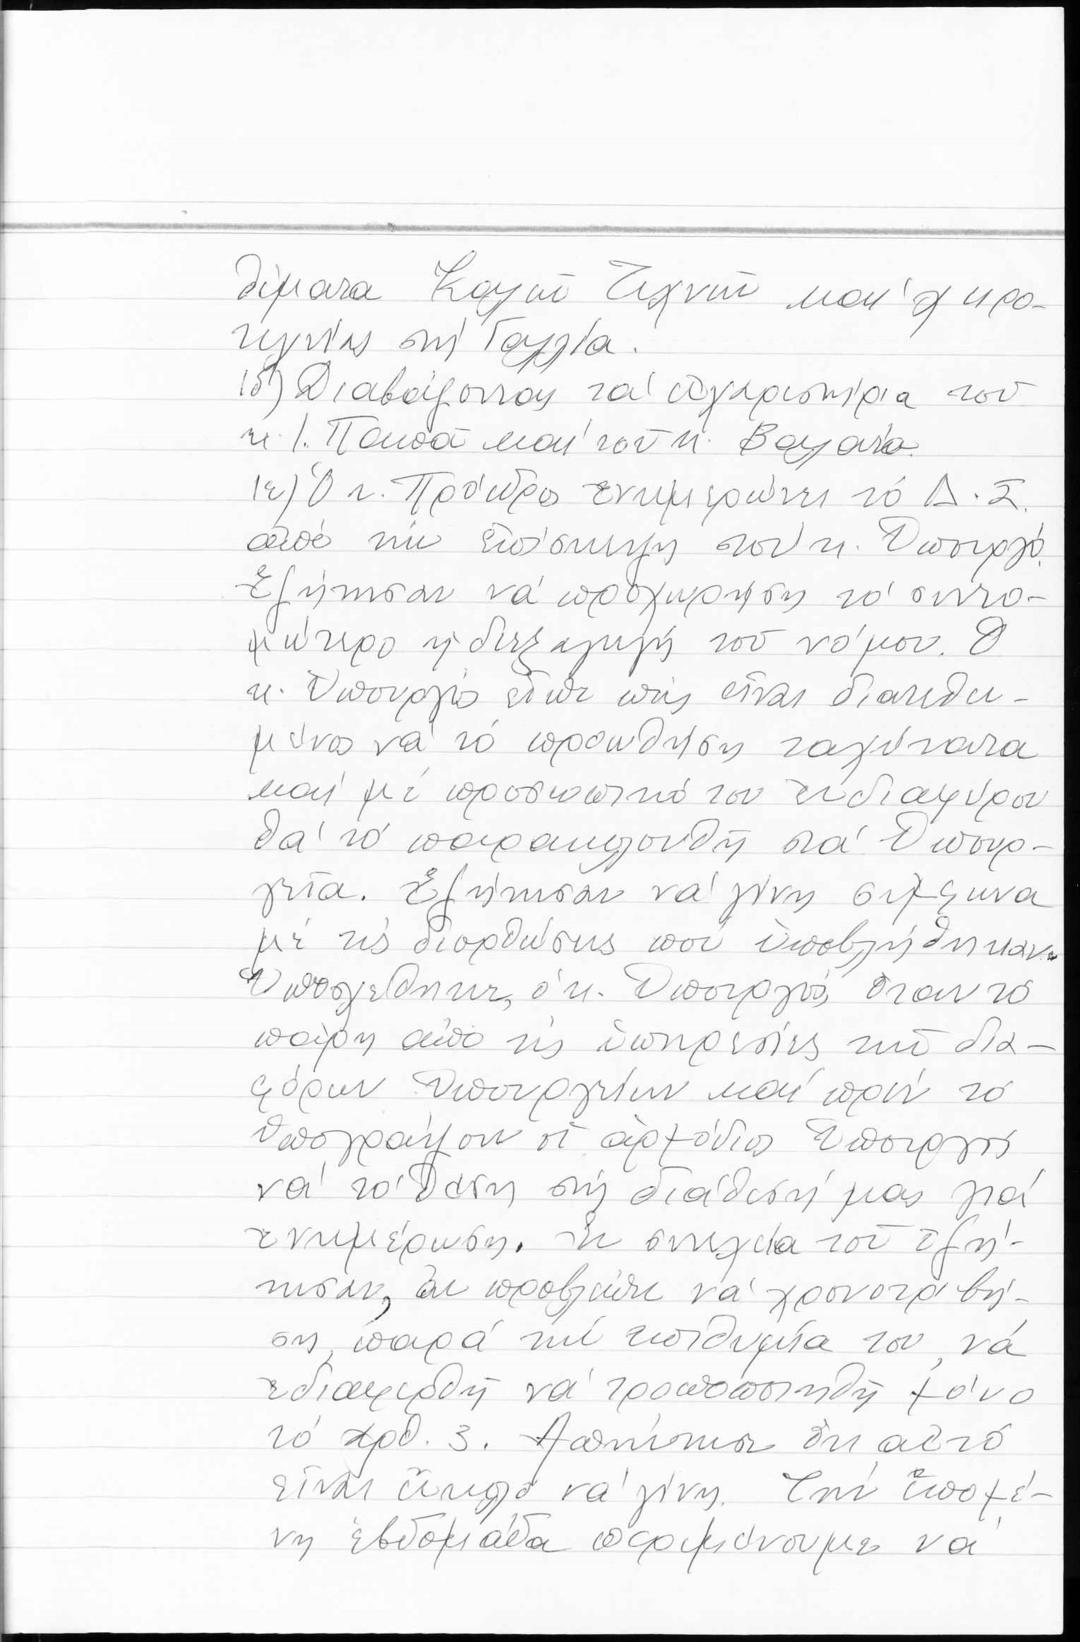 θέματα Καλῶν Τεχνῶν καί χειρο-
τεχνίας στή Γαλλία.
ιδ) Διαβάζονται τά εὐχαριστήρια τοῦ
κ. Ι. Παππᾶ καί τοῦ κ. Βαλσάμ
ιε) Ὁ κ. Πρόεδρος ἐνημερώνει τό Δ.Σ.
ἀπό τήν ἐπίσκεψη στόν κ. Ὑπουργό.
Ἐζήτησαν νά προχωρήση τό συντο-
μώτερο ἡ διεξαγωγή τοῦ νόμου. Ὁ
κ. Ὑπουργός εἶπε πώς εἶναι διατεθει-
μένος νά τό προωθήση ταχύτατα
καί μέ προσωπικό του ἐνδιαφέρον
θά τό παρακολουθῆ στά Ὑπουρ-
γεῖα. Ἐζήτησαν νά γίνη σύμφωνα
μέ τίς διορθώσεις πού ὑποβλήθηκαν.
Ὑποσχέθηκε, ὁ κ. Ὑπουργός, ὅταν τό
πάρη ἀπό τίς ὑπηρεσίες τῶν δια-
φόρων Ὑπουργείων καί πρίν τό
ὑπογράψουν οἱ ἁρμόδιοι Ὑπουργοί
νά τό θέση στή διάθεσή μας γιά
ἐνημέρωση. Ἐν συνεχεία τοῦ ἐζή-
τησαν, ἄν προβλέπει νά χρονοτριβή-
ση, παρά τήν ἐπιθυμία του, νά
ἐνδιαφερθῆ νά τροποποιηθῆ μόνο
τό ἄρθ. 3. Ἀπήντησε ὅτι αὐτό
εἶναι εὔκολο νά γίνη. Τήν ἑπομέ-
νη ἑβδομάδα περιμένουμε νά